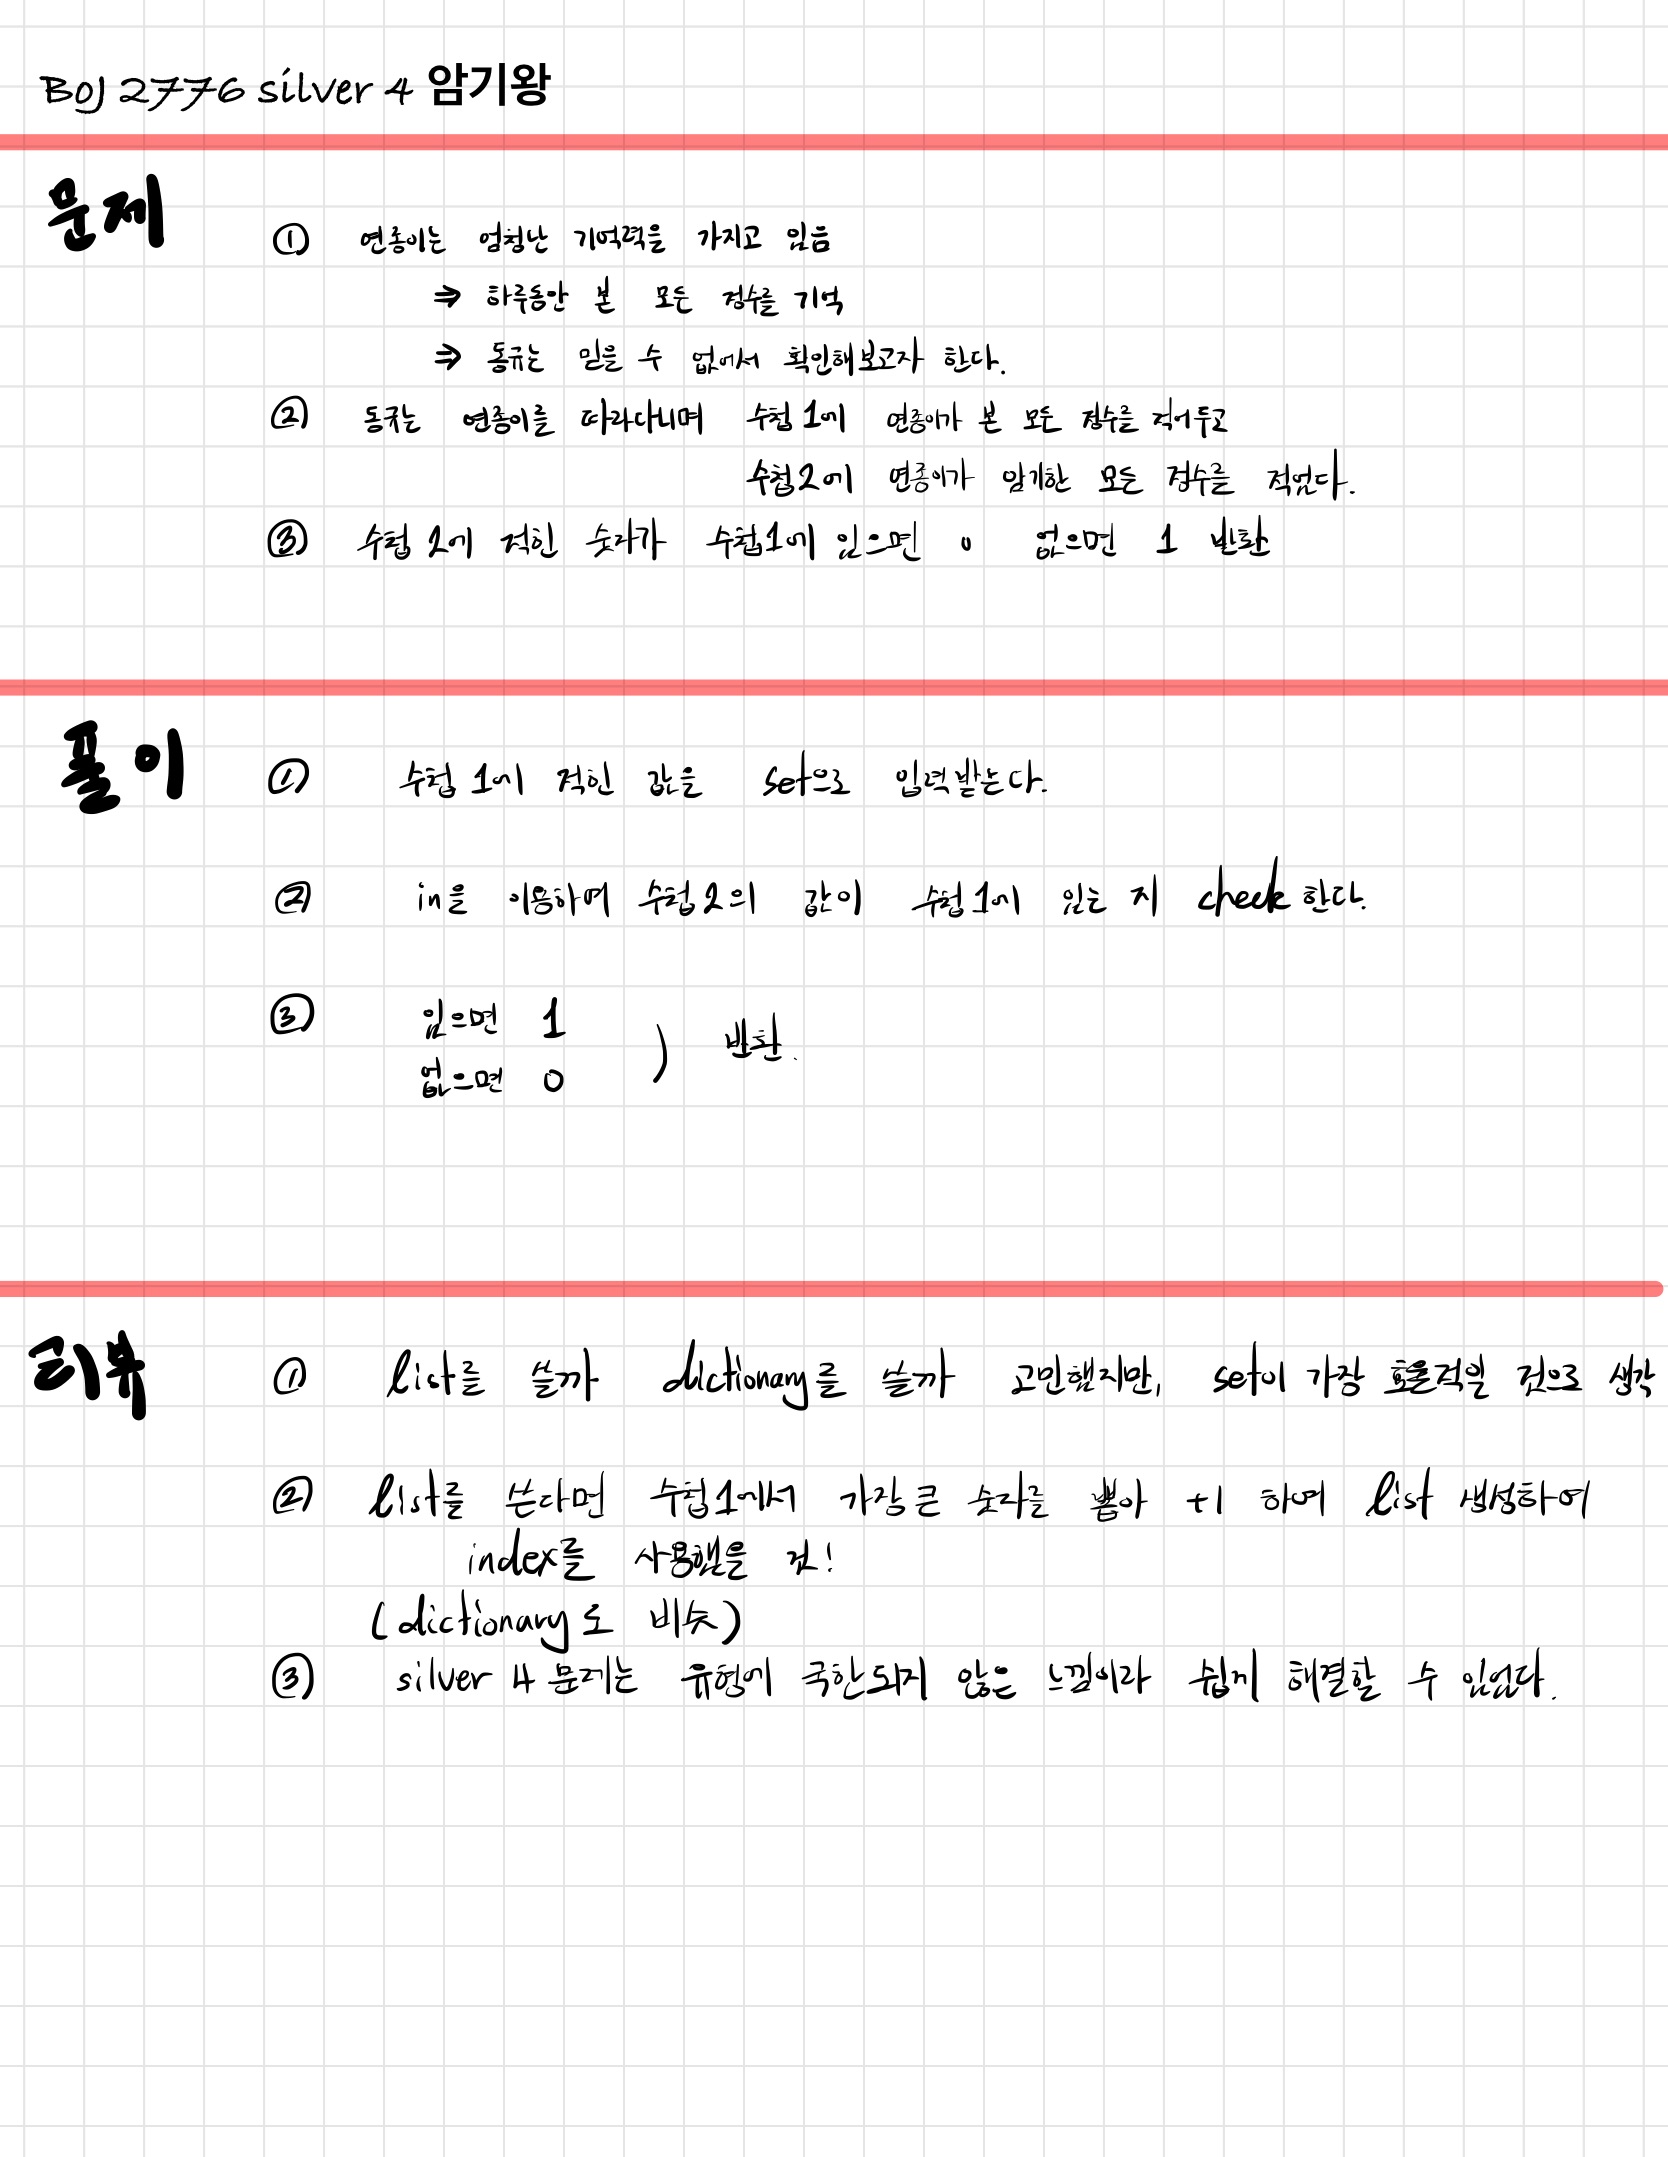 BOJ 2776 silver 4 암기왕
문제
① 연종이는 엄청난 기억력을 가지고 있음
⇒ 하루동안 본 모든 정수를 기억
⇒ 동규는 믿을 수 없어서 확인해보고자 한다.
② 동규는 연종이를 따라다니며 수첩1에 연종이가 본 모든 정수를 적어두고
수첩2에 연종이가 암기한 모든 정수를 적었다.
③ 수첩 2에 적힌 숫자가 수첩1에 있으면 0 없으면 1 반환
풀이
① 수첩 1에 적힌 값을 set으로 입력받는다.
② in을 이용하며 수첩2의 값이 수첩1에 있는 지 check한다.
③ 있으면 1
) 반환.
없으면 0
리뷰
① list를 쓸까 dictionary를 쓸까 고민했지만, set이 가장 효율적일 것으로 생각
② list를 쓴다면 수첩1에서 가장 큰 숫자를 뽑아 +1 하여 list 생성하여
index를 사용했을 것!
(dictionary도 비슷)
③ silver 4 문제는 유형에 국한되지 않은 느낌이라 쉽게 해결할 수 있었다.